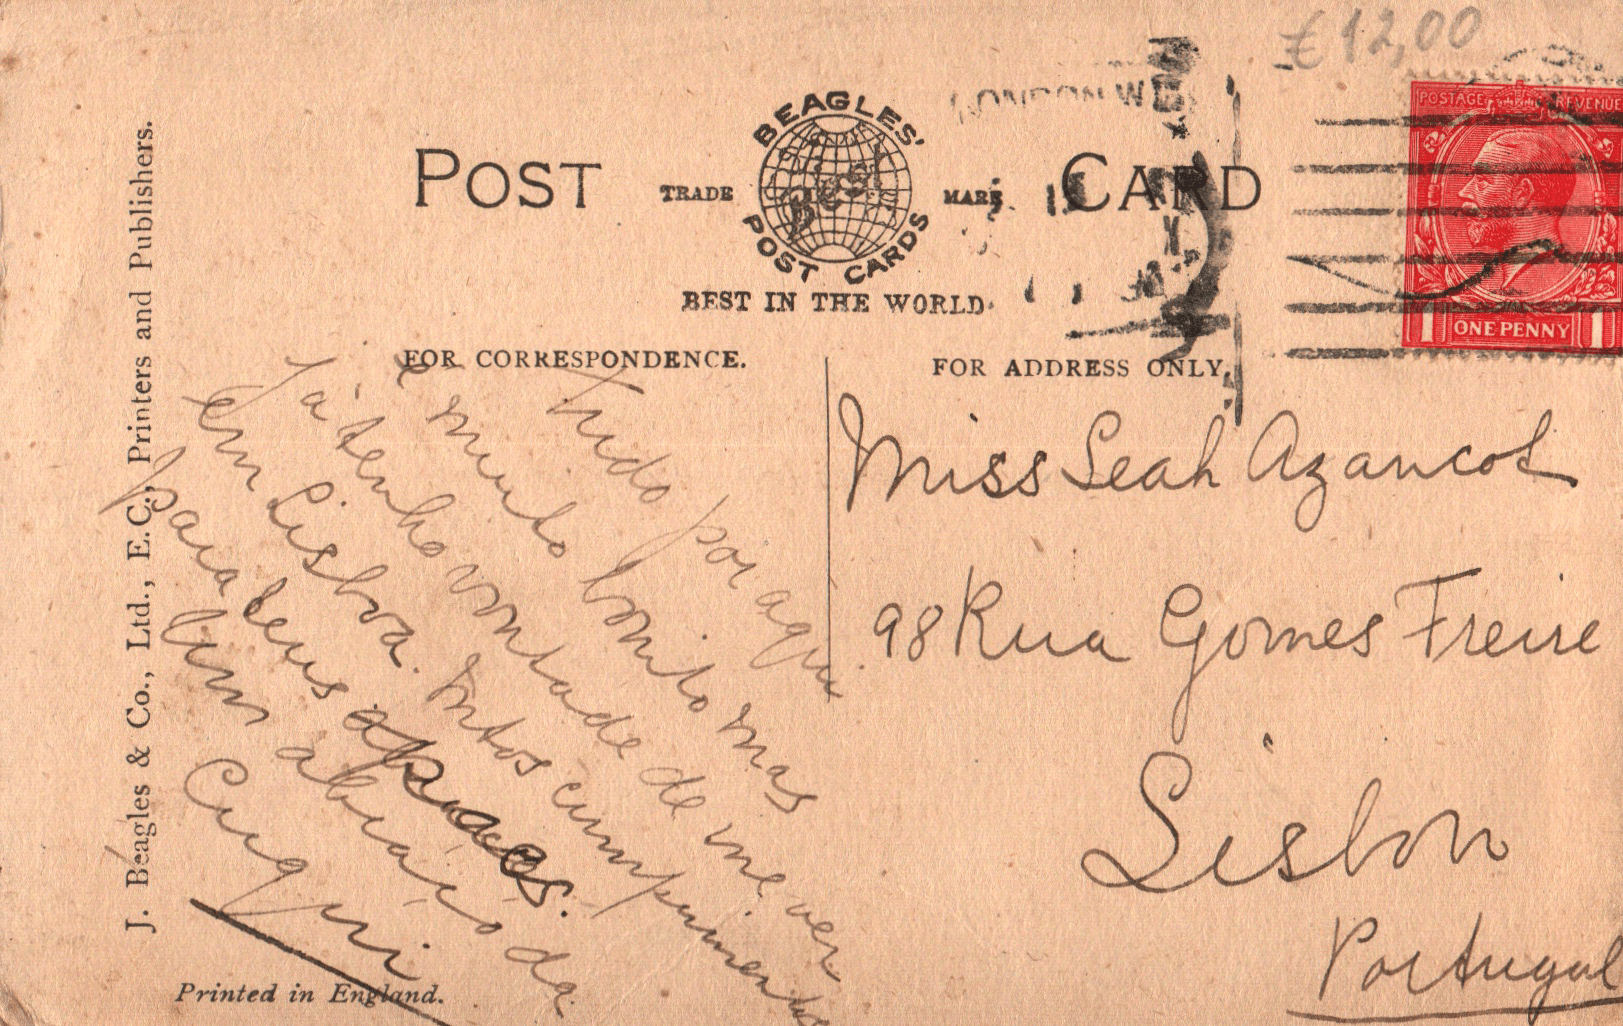 €12,00
LONDON W
POSTAGE REVENUE
ONE PENNY
1 1
POST CARD
BEAGLES'
Best
POST CARDS
TRADE MARK
BEST IN THE WORLD.
FOR CORRESPONDENCE.
FOR ADDRESS ONLY.
Tudo por aqui
é muito bonito mas
Já tenho vontade de me ver
em Lisboa. Mtos cumprimentos
para teus
Um abraço da
Cuqui
Miss Leah Azancot
98 Rua Gomes Freire
Lisbon
Portugal
J. Beagles & Co., Ltd., E.C., Printers and Publishers.
Printed in England.